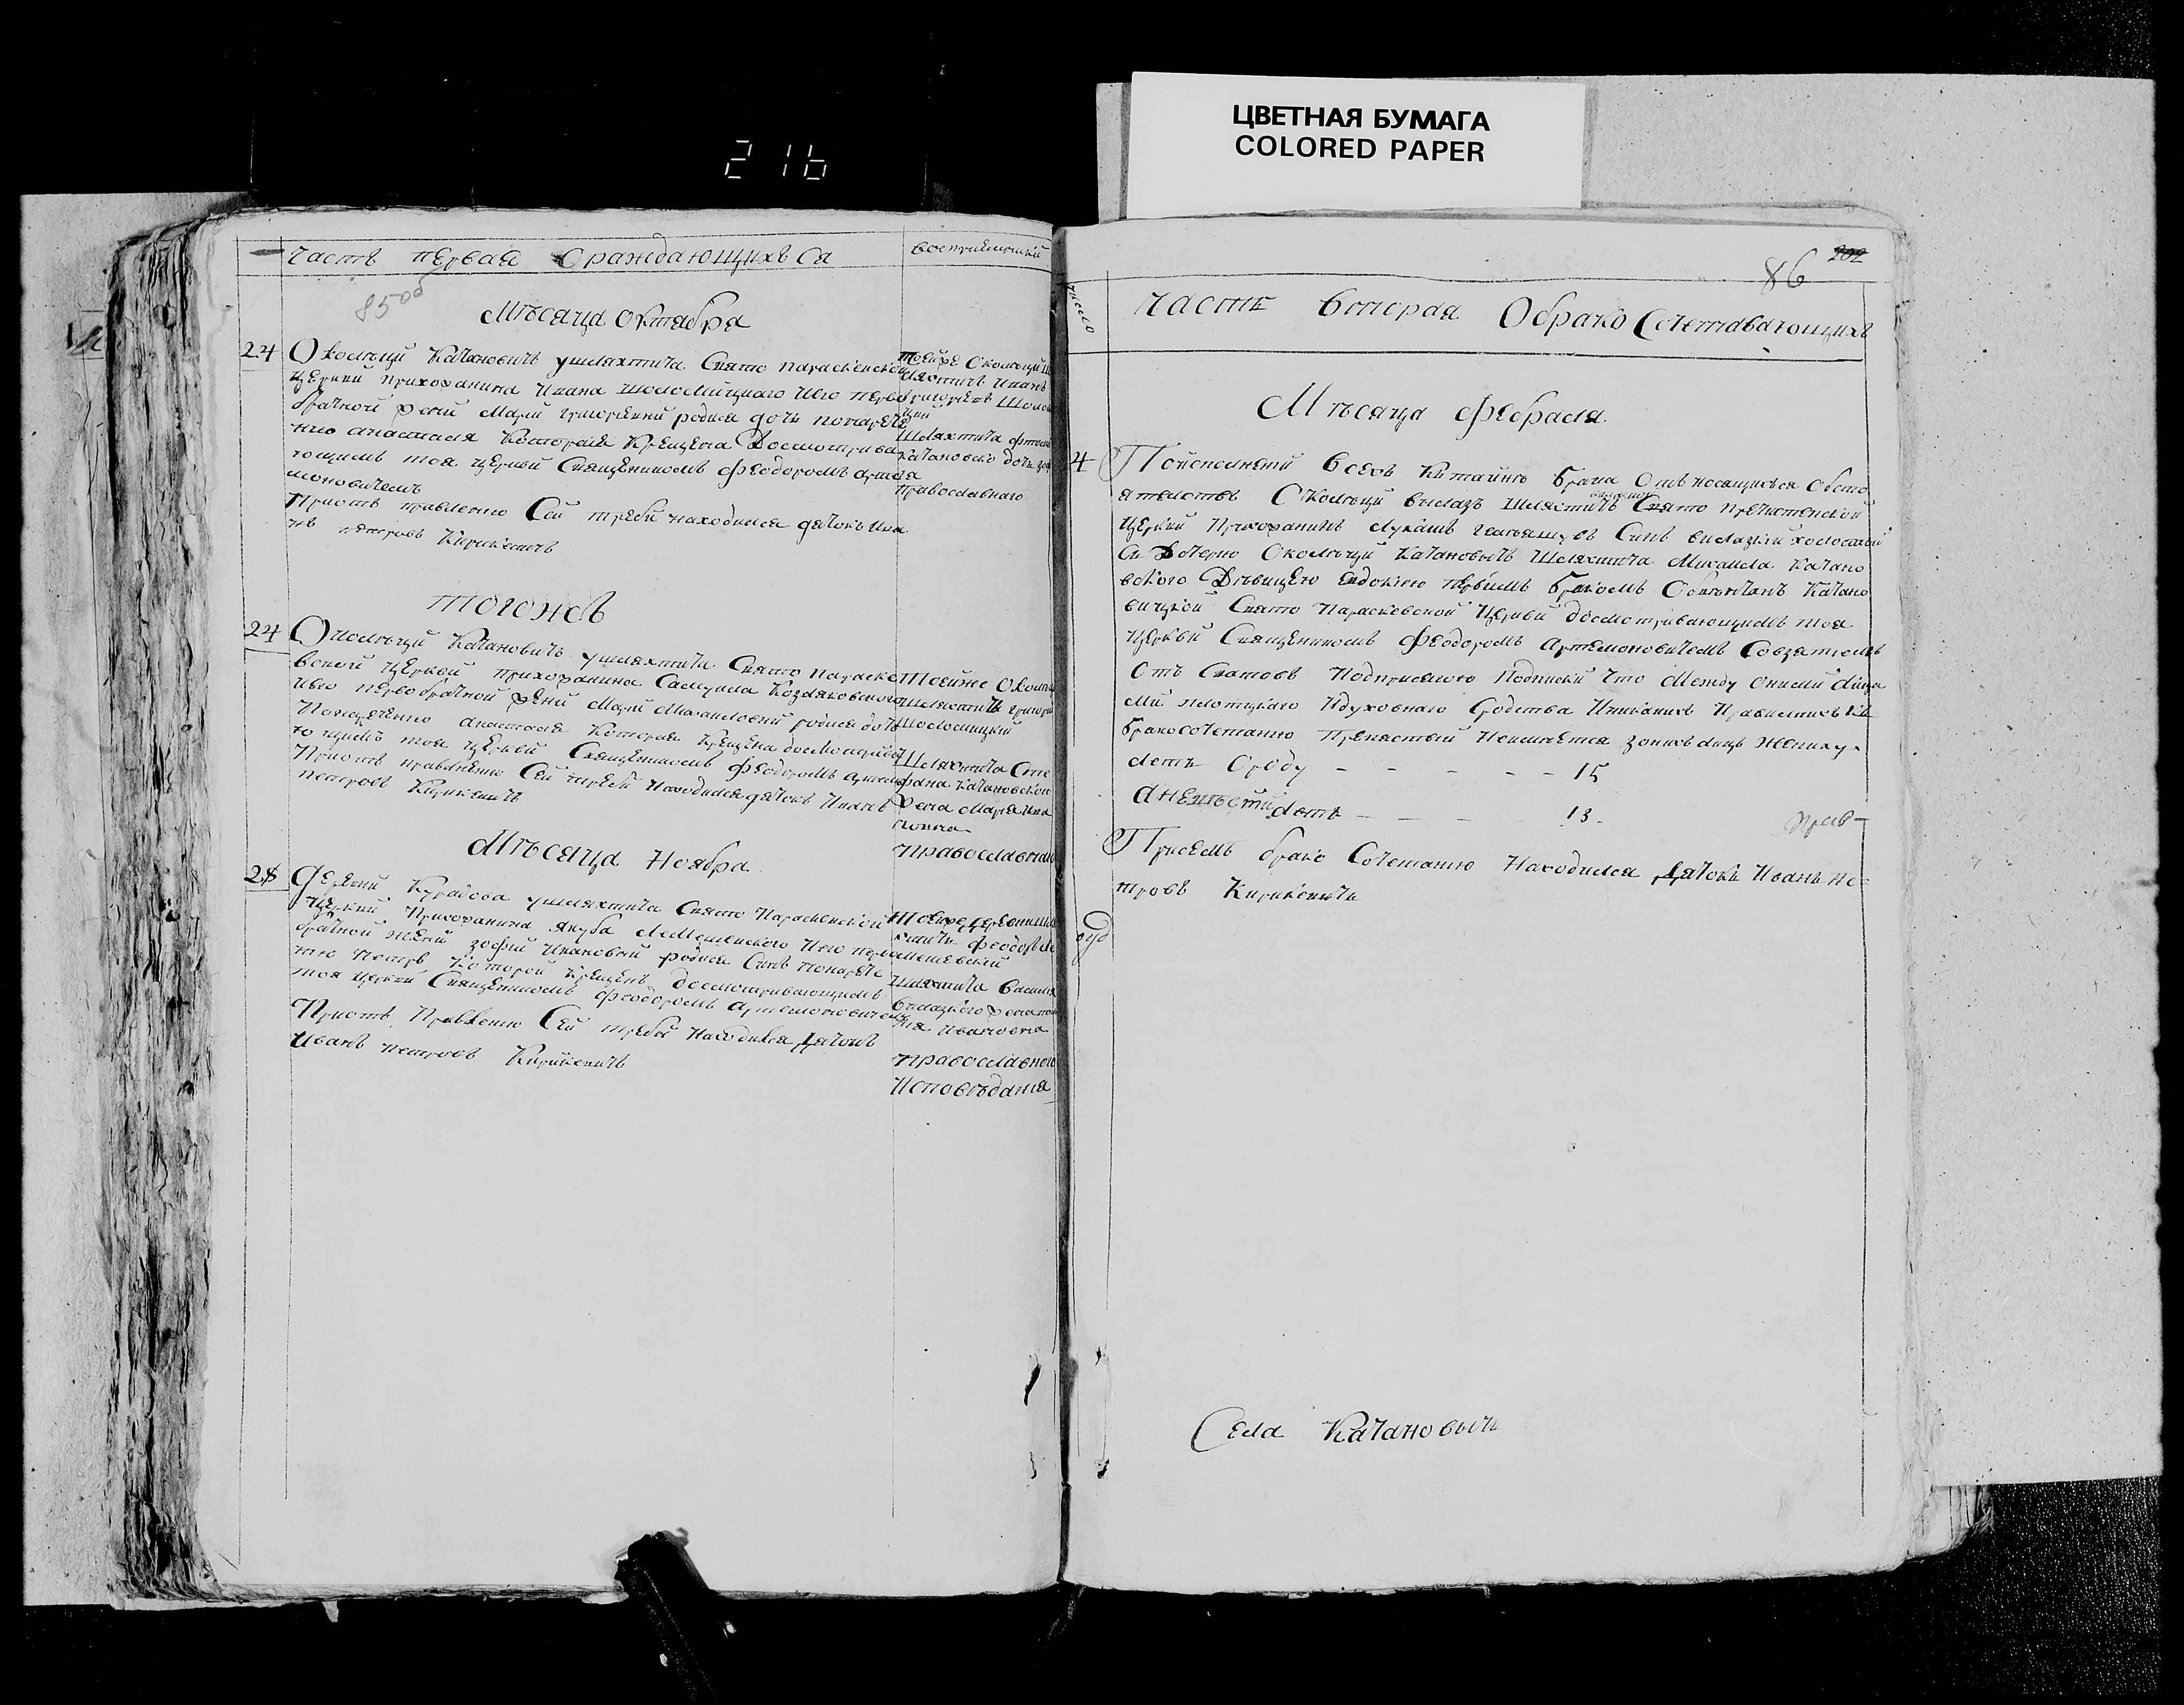 ЦВЕТНАЯ БУМАГА
COLORED PAPER
216
часть первая о раждающихъся
восприемники
85об
Мѣсяца октября
24 Околицы Качановичъ у шляхтича Свято параскевской
церкви прихожанина Ивана Шоломицкаго Его перво
брачной жены Марiи григорiевны родися дочь по нарѣче
нию анастасия Которая Крещена Досмотрива
ющимъ тоя церкви Священникомъ Феодоромъ арте
моновичемъ
При отправлению Сей требы находился дячокъ Ива
нъ петровъ Кирикевичъ
тойже Околицы Шл
яхтичъ Иванъ
григориевъ Шоломи
цкий
Шляхтича
Качановско дочь
православнаго
тогожъ
24 Околицы Качановичъ у шляхтича Свято параске
вской церкви прихожанина Самуила Козляковского
Его первобрачной жены Марiи Михаиловны родися дочь
По нарѣчению анастасия Которая Крещена досмотрива
ющимъ тоя церкви Священникомъ Феодоромъ артемо
При отправлению Сей требы находился дячокъ Иванъ
петровъ Кирикевичъ
Тойже Околицы
шляхтичъ григори
Шоломицкий
Шляхтича Сте
фана Качановского
жена Марiя Ива
новна
православнаго
Мѣсяца Ноября
28 Деревни Курадова у шляхтича Свято Параскевской
Церкви Прихожанина Якуба Лемешевского Его перво
брачной жены зофии Ивановны родися Сынъ по нарече
нию Петръ Которой Крещенъ досмотривающимъ
тоя церкви Священникомъ Феодоромъ Артемоновичемъ
При отправлению Сей требы находился Дячокъ
Иванъ петровъ Кирикевичъ
Тойже деревни шля
хтичъ Феодоръ Ле
мешевский
шляхтича Василия
вылазкого жена
Ивановна
православного
Исповѣдания
202
86
число
часть вторая О брако Сочетавающихъ
Мѣсяца Февраля.
4 По исполнении всехъ Кътайнѣ брака Отъносящихся Обсто
ятелствъ Околицы вылазъ Шляхтичъ Свято пречистенской
церкви Прихожанинъ Лукашъ Сынъ вылазкий холостый
Съ Дочерю Околицы Качановичъ Шляхтича Михаила Качано
вского Дѣвицею Евдокиею первымъ бракомъ Обвенчанъ Качано
вицкой Свято Параскевской Церкви досмотривающимъ тоя
Церкви Священникомъ Феодоромъ Артемоновичемъ Совзятиемъ
Отъ Сватовъ Подприсягою Подписки Что Между Оними Лица
ми плотскаго Идуховнаго Сродства Иникакихъ Правилнихъ Къ
бракосочетанию Препяствий Неимѣется зоныхъ лицъ Жениху
летъ Сроду - - - - - - 15
Аневѣстѣ летъ - - - - 13-
При семъ брако Сочетанию Находился Дячокъ Иванъ Пе
тровъ Кирикевичъ
Села Качановичъ